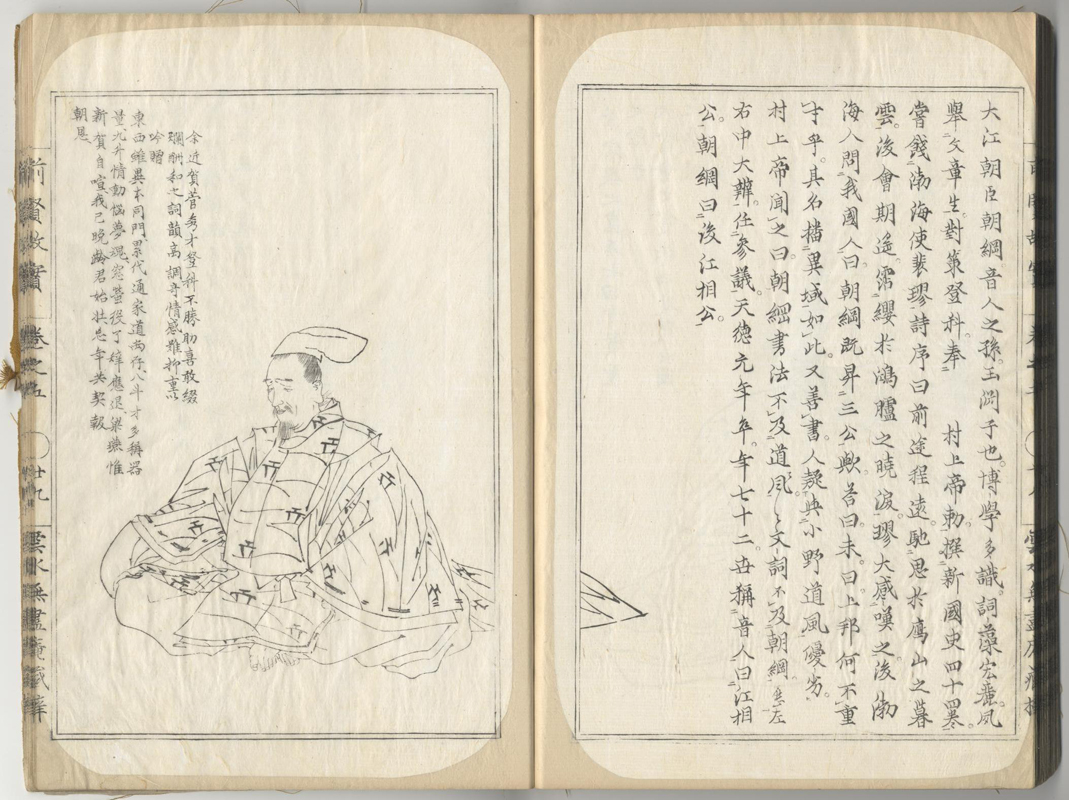 大江朝臣朝綱音人之孫玉淵子也。博學多識。詞藻宏麗。夙
舉文章生。對策登科。奉　村上帝勅。撰新國史四十卷。
嘗餞渤海使裴璆詩序曰前途程遠。馳思於鴈山之暮
雲。後會期遙。霑纓於鴻臚之曉淚。璆大感嘆之後。渤
海人問我國人曰朝綱既昇三公歟答曰未。曰。上邦何不重
才乎。其名播異域如此。又善書。人疑與小野道風優劣。
村上帝聞之曰。朝綱書法不及道風。道風文詞不及朝綱。歷左
右中大辨。任參議。天德元年卒。年七十二世稱音人曰江相
公。朝綱曰後江相公。
余近賀菅秀才登科不勝助喜敢綴
爛酬和之詞韻高調奇情感難抑重以
吟贈
東西雖異本同門累代通家道尚存八斗才多稱器
量九升情動惱夢魂窓螢役了辭應退梁燕惟
新賀自喧我已晚齡君始壯忘年共契報
朝恩
前賢故實　卷之五　廿九　雲水無盡庵藏梓